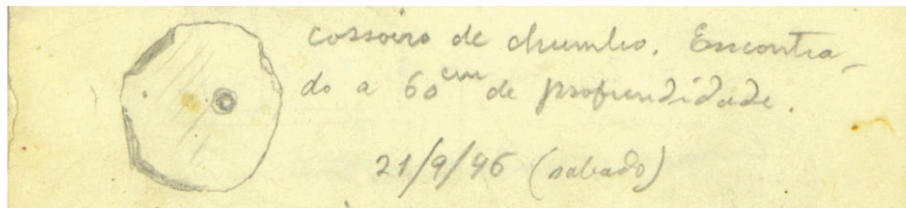 cossoiro de chumbo. Encontra_
do a 60 cm de profundidade.
21/9/46 (sabado)